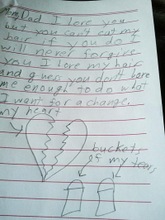 Dad I love you
but you can't cut my
hair if you do I
will never forgive
you I love my hair
and I guess you don't love
me enough to do what
I want for a change.
my heart
buckets
of my tears